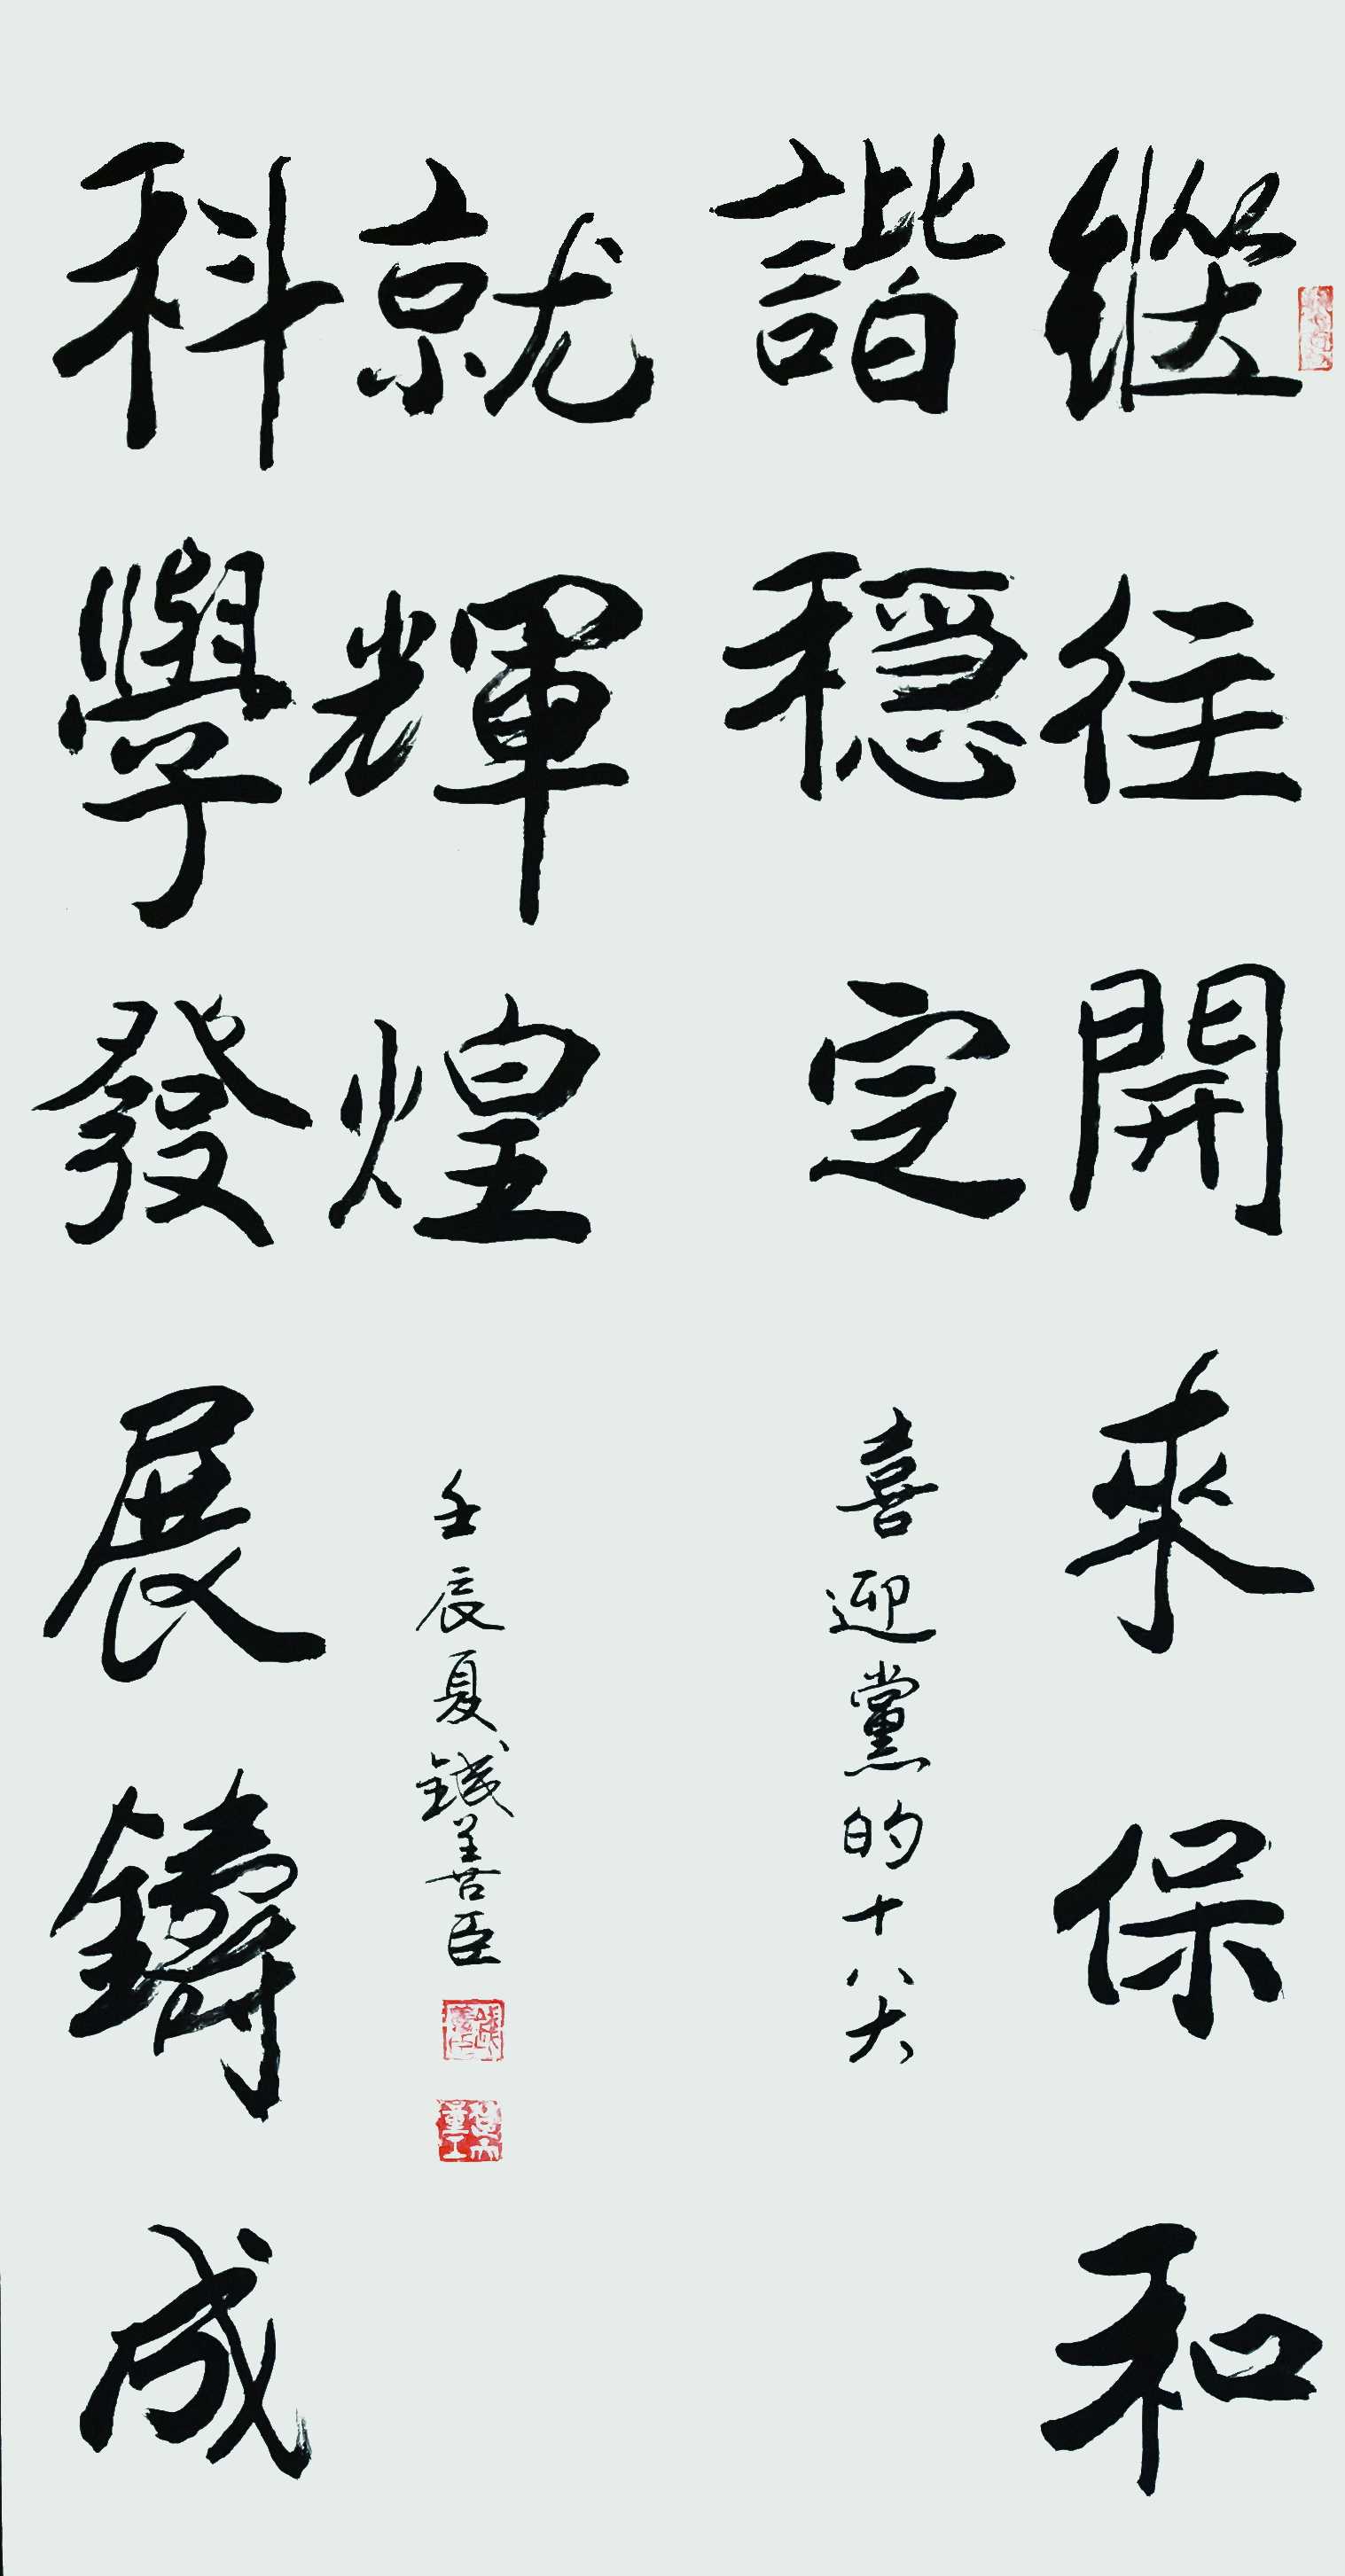 繼往開來保和
諧穩定
喜迎黨的十八大
科學發展鑄成
就輝煌
壬辰夏 善臣